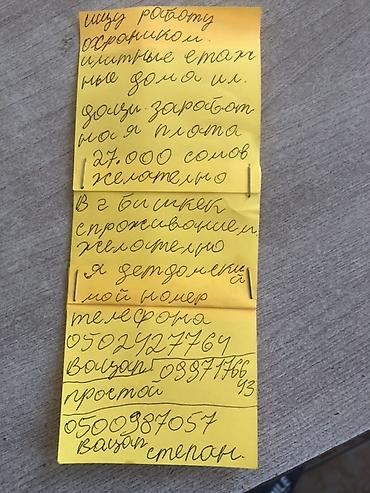 ищу работу
охраником.
илитные етаж
ные дома ил.
дощи. заработ
ная плата
27.000 сомов
желательно
В г бишкек
спроживанием
желательно
я детдомский
мой номер
телефона
0502427764
Вацап 09971766
43
простой
0500987057
вацап
степан.